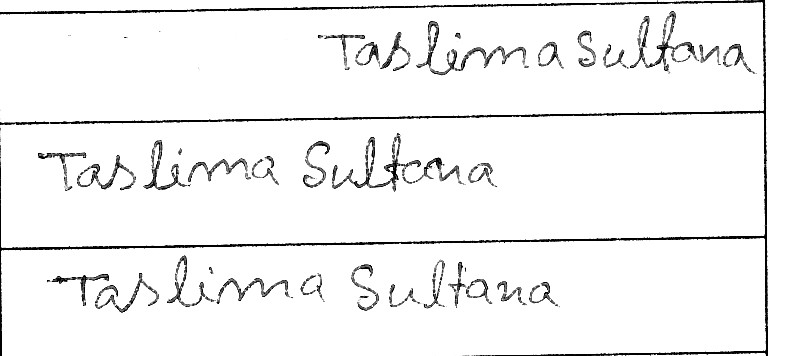 Taslima Sultana
Taslima Sultana
Taslima Sultana